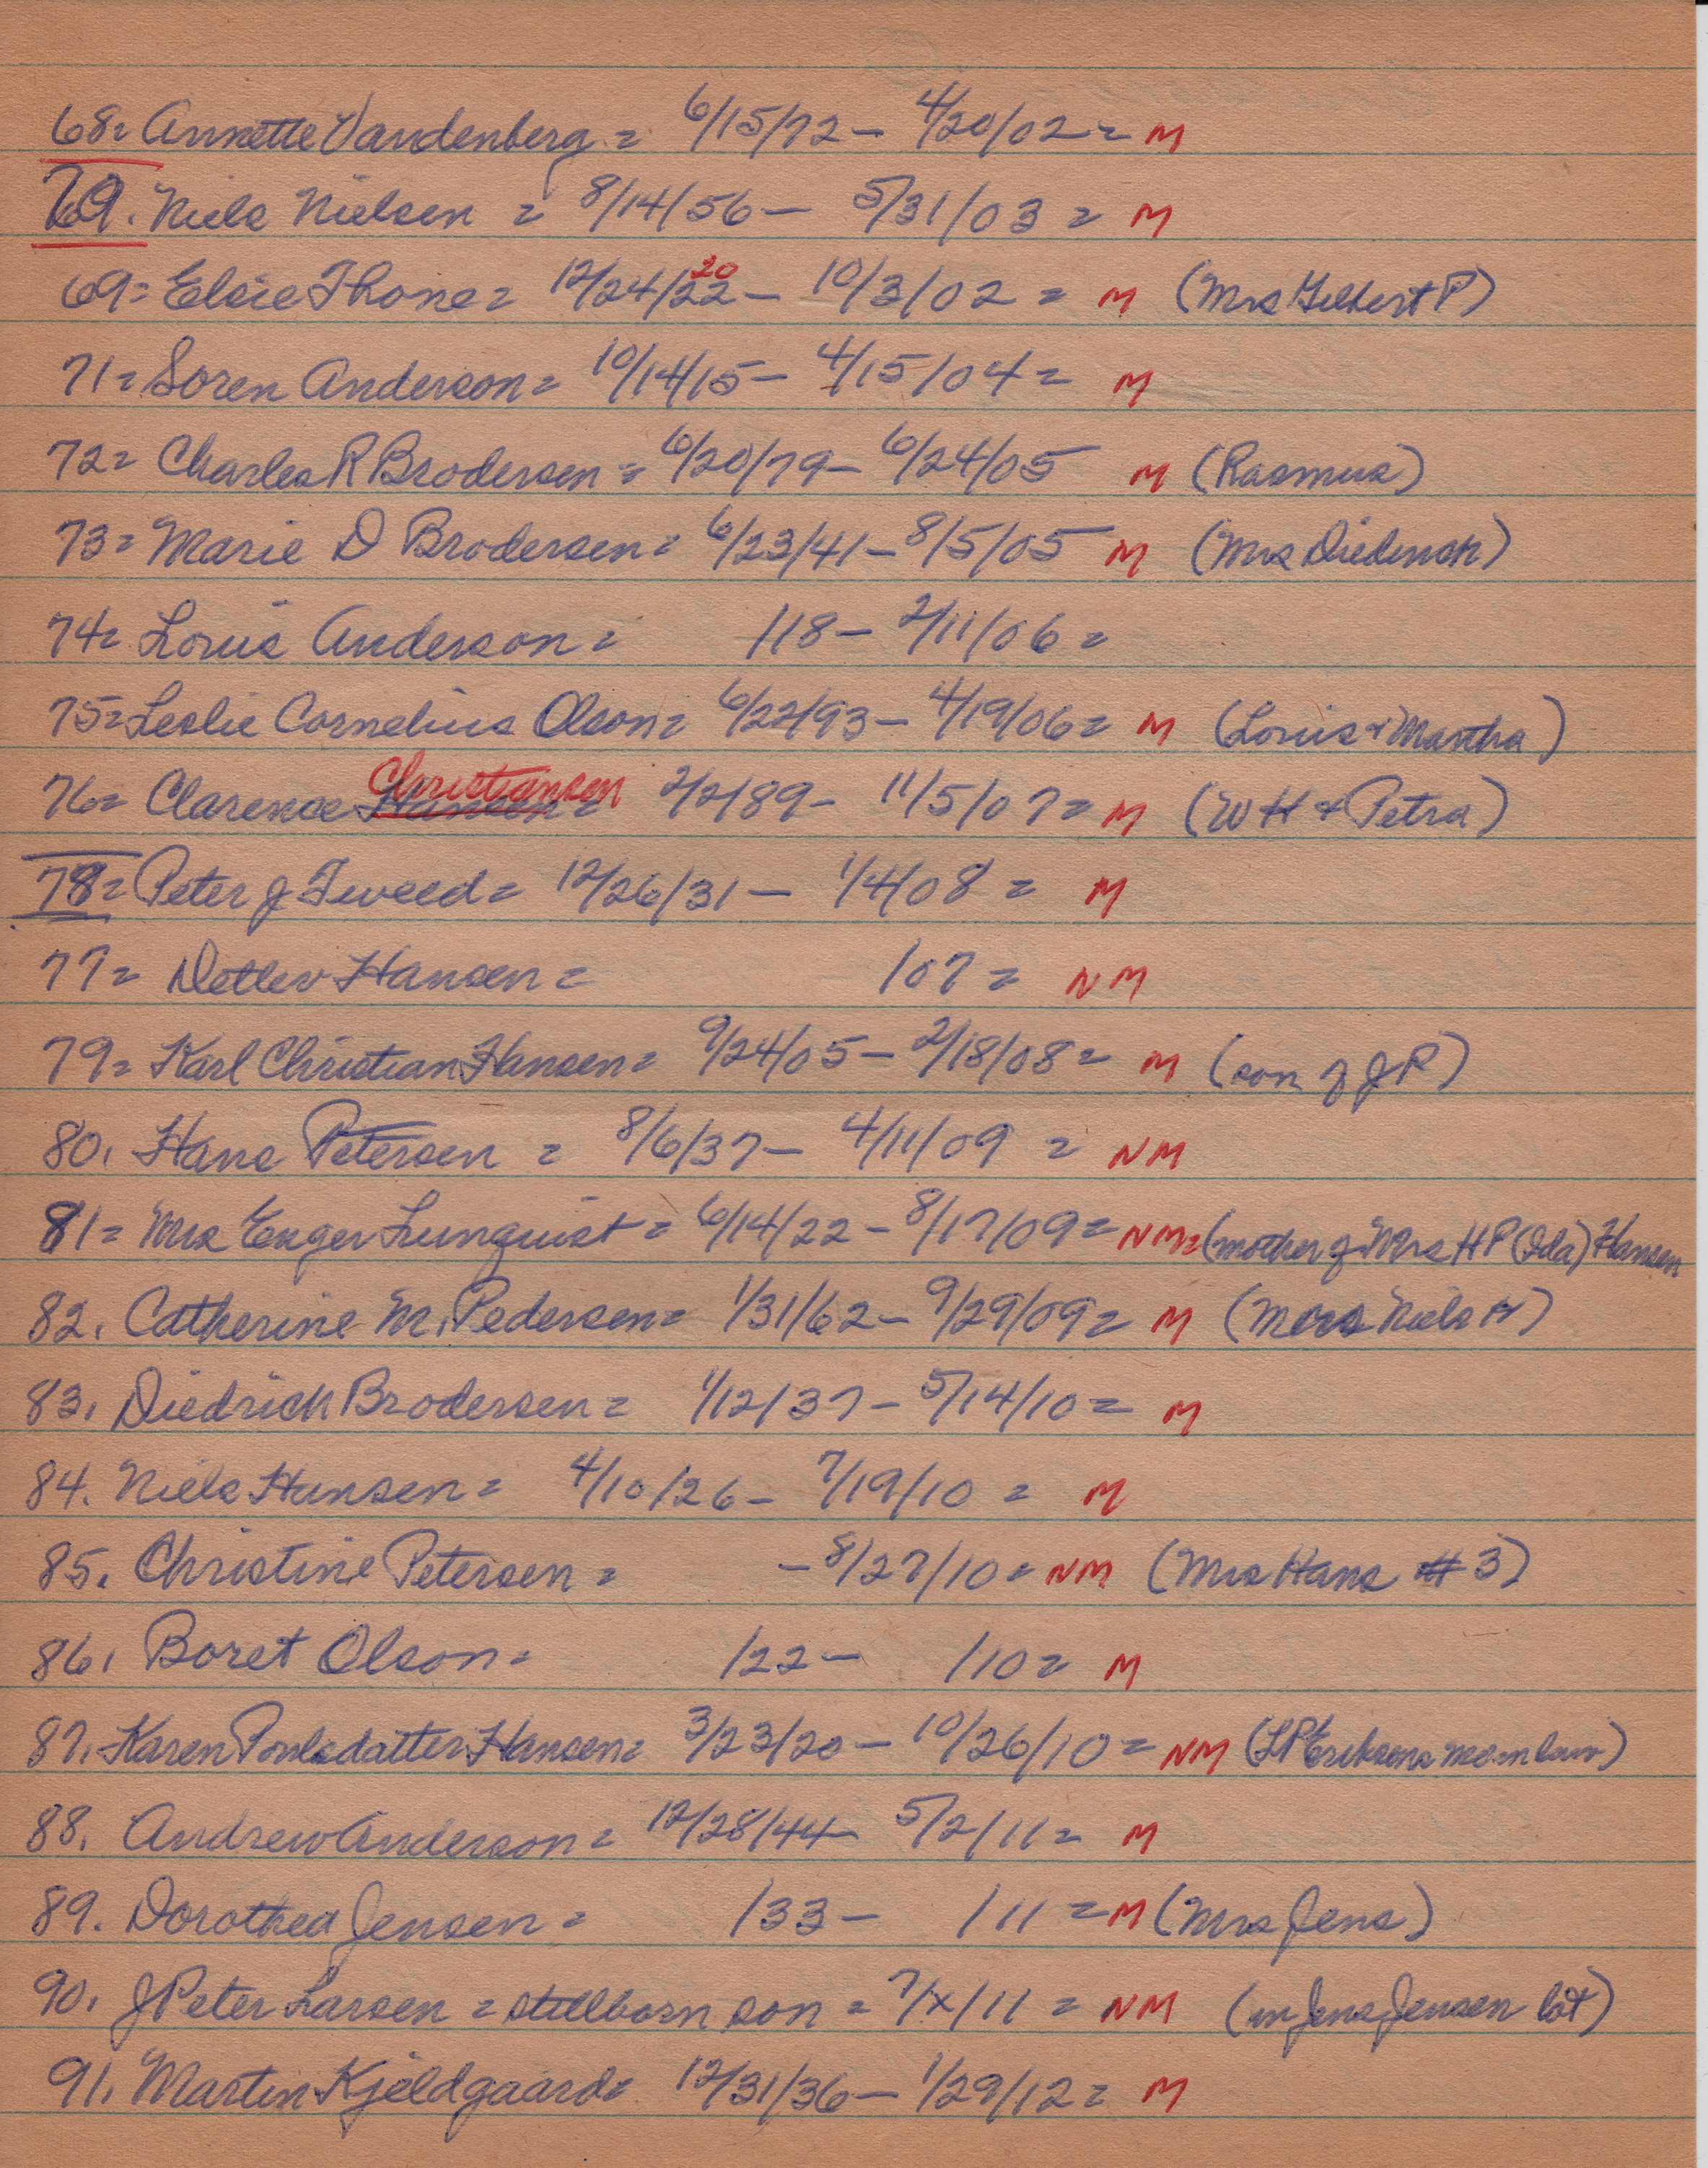 68= Annette Vandenberg = 6/15/72 - 4/20/02 = M
70. Niels Nielsen = 8/14/56 - 5/31/03 = M
20
69= Elsie Thone = 12/24/22 - 10/3/02 = M (Mrs Gilbert P)
71= Soren Anderson = 10/14/15 - 4/15/04 = M
72= Charles R Brodersen = 6/20/79 - 6/24/05 M (Rasmus)
73= Marie D Brodersen = 6/23/41 - 8/5/05 M (Mrs Diedrich)
74= Louis Anderson = /18 - 2/11/06 =
75= Leslie Cornelius Olson = 6/22/93 - 4/19/06 = M (Louis & Martha)
Christiansen
76= Clarence Hansen = 2/2/89 - 11/5/07 = M (WH & Petra)
78= Peter J Tweed = 12/26/31 - 1/4/08 = M
77= Detlev Hansen = /07 = NM
79= Karl Christian Hansen = 9/24/05 - 2/18/08 = M (son of JR)
80. Hans Petersen = 8/6/37 - 4/11/09 = NM
81= Mrs Enger Lunquist = 6/14/22 - 8/17/09 = NM = (mother of Mrs HP (Ida) Hansen
82. Catherine M. Pedersen = 1/31/62 - 9/29/09 = M (Mrs Niels H)
83. Diedrich Brodersen = 1/12/37 - 5/14/10 = M
84. Niels Hansen = 4/10/26 - 7/19/10 = M
85. Christine Petersen = - 8/27/10 = NM (Mrs Hans #3)
86. Boret Olson = /22 - /10 = M
87. Karen Poulsdatter Hansen = 3/23/20 - 10/26/10 = NM (LP Eriksens
88. Andrew Anderson = 12/28/44 - 5/2/11 = M
89. Dorothea Jensen = /33 - /11 = M (Mrs Jens)
90. J Peter Larsen = stillborn son = 7/x/11 = NM (in Jens Jensen lot)
91. Martin Kjeldgaard = 12/31/36 - 1/29/12 = M